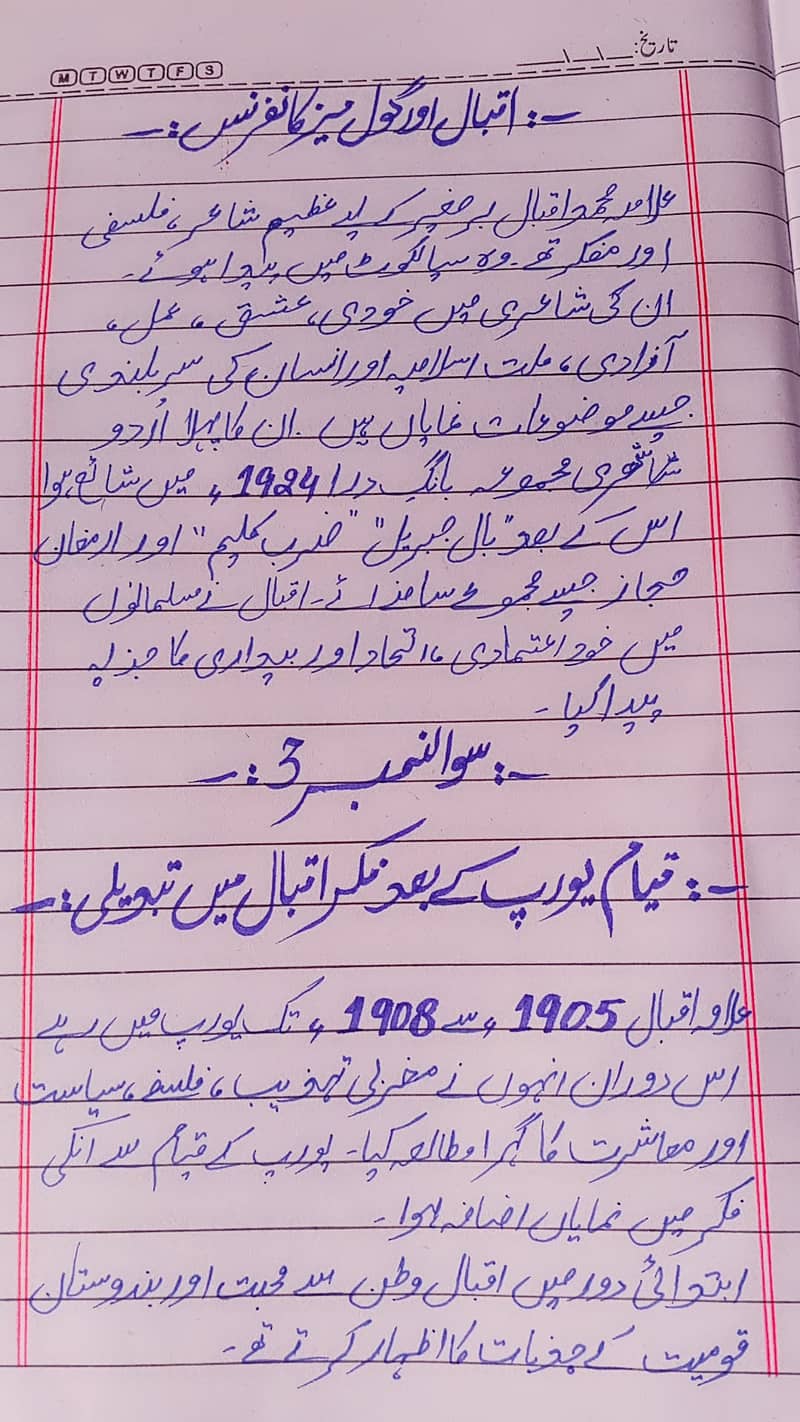 تاریخ: __١__١__
M T W T F S
-:اقبال اور گول میز کانفرنس:-
علامہ محمد اقبال برصغیر کے عظیم شاعر، فلسفی
اور مفکر تھے۔ وہ سیالکوٹ میں پیدا ہوئے۔
ان کی شاعری میں خودی، عشق، عمل،
آزادی، ملت اسلامیہ اور انسان کی سر بلندی
جیسے موضوعات نمایاں ہیں۔ ان کا پہلا اُردو
شعری مجموعہ بانگ درا 1924ء میں شائع ہوا
اس کے بعد "بال جبریل" "ضرب کلیم" اور ارمغان
حجاز جیسے مجموعے سامنے آئے۔ اقبال نے مسلمانوں
میں خود اعتمادی، اتحاد اور بیداری کا جذبہ
پیدا کیا۔
-:سوال نمبر 3:-
-:قیام یورپ کے بعد فکر اقبال میں تبدیلی:-
علامہ اقبال 1905ء سے 1908ء تک یورپ میں رہے
اس دوران انہوں نے مغربی تہذیب، فلسفے، سیاست
اور معاشرت کا گہرا مطالعہ کیا۔ یورپ کے قیام سے انکی
فکر میں نمایاں اضافہ ہوا۔
ابتدائی دور میں اقبال وطن سے محبت اور ہندوستان
قومیت کے جذبات کا اظہار کرتے تھے۔